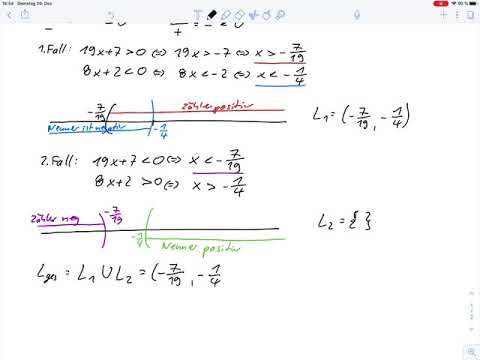 14:54 Dienstag 08. Dez.
90 %
1. Fall: 19x+7>0 ⇔ 19x>-7 ⇔ x>-7/19
8x+2<0 ⇔ 8x<-2 ⇔ x<-1/4
-7/19 Zähler positiv
Nenner ist negativ -1/4
L₁ = (-7/19, -1/4)
2. Fall: 19x+7<0 ⇔ x<-7/19
8x+2>0 ⇔ x>-1/4
Zähler neg -7/19
-1/4 Nenner positiv
L₂ = { }
L ges = L₁ ∪ L₂ = (-7/19, -1/4